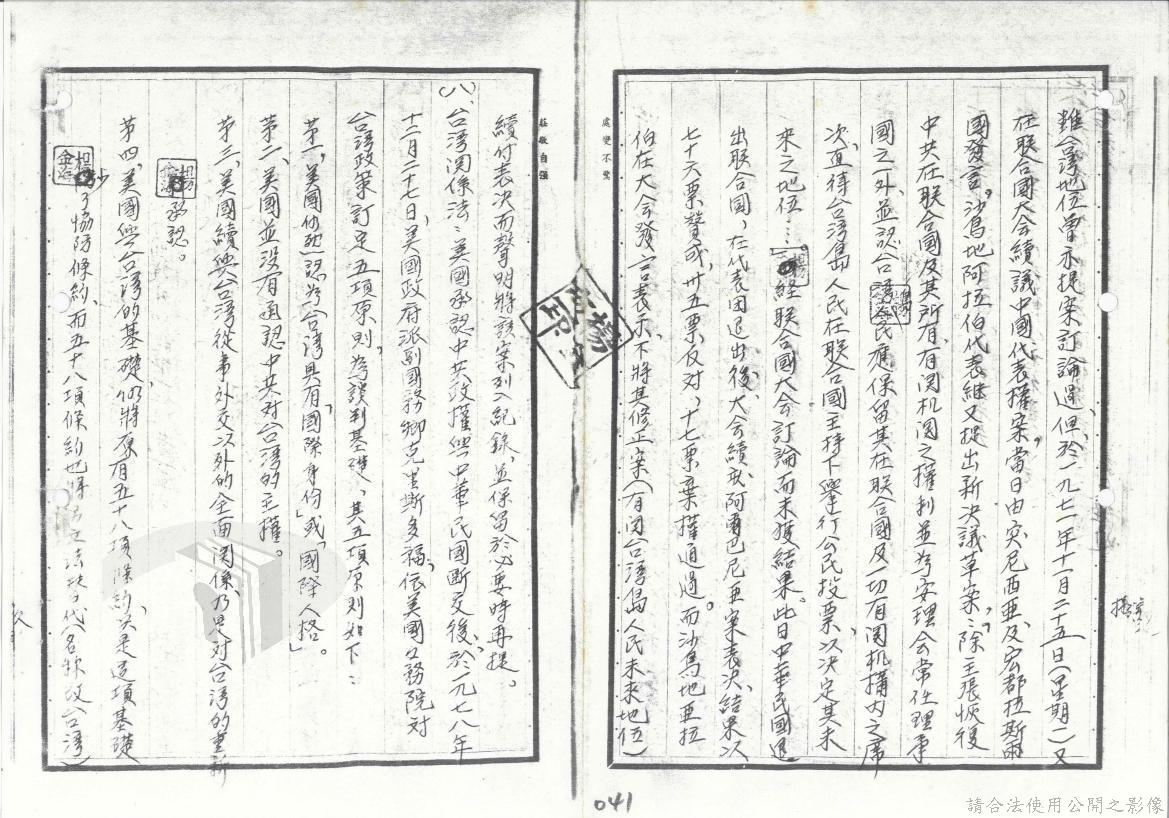 雖台湾地位曾未提案討論過、但於一九七一年十一月二十五日(星期一)又
在联合國大会續議中國代表權案,當日由突尼西亞及宏都拉斯兩
國發言。沙烏地阿拉伯代表継又提出新決議草案:「除主張恢復
中共在联合國及其所有有関机関之權利並為安理会常任理事
國之一外、並認台湾島民應保留其在联合國及一切有関机構內之席
次、直待台湾島人民在联合國主持下舉行公民投票、以決定其未
來之地位…」経联合國大会討論而未獲結果。此日中華民國退
出联合国、在代表団退出後、大会續就阿爾巴尼亞案表決、結果以
七十六票贊成,卅五票反对,十七票棄權通過。而沙烏地亜拉
伯在大会發言表示、不將其修正案(有関台湾島人民未來地位)
續付表決而聲明將該案列入紀錄、並保留於必要時再提。
(八)、台湾関係法:美國承認中共政權與中華民國断交後、於一九七八年
十二月二十七日,美國政府派副國務卿克里斯多福,依美國国務院対
台湾政策訂定五項原則,為談判基礎、其五項原則如下:
第一,美國仍認為台湾具有「國際身份」或「國際人格」。
第二、美國並没有承認中共对台湾的主權。
第三,美國續與台湾從事外交以外的全面関係、乃是对台湾的重新
承認。
第四,美國與台湾的基礎,仍將原有五十八項條約、決是這項基礎
了協防條約、而五十八項條約也將 立法 代(名称改台湾)
處變不驚
莊敬自强
041
請合法使用公開之影像